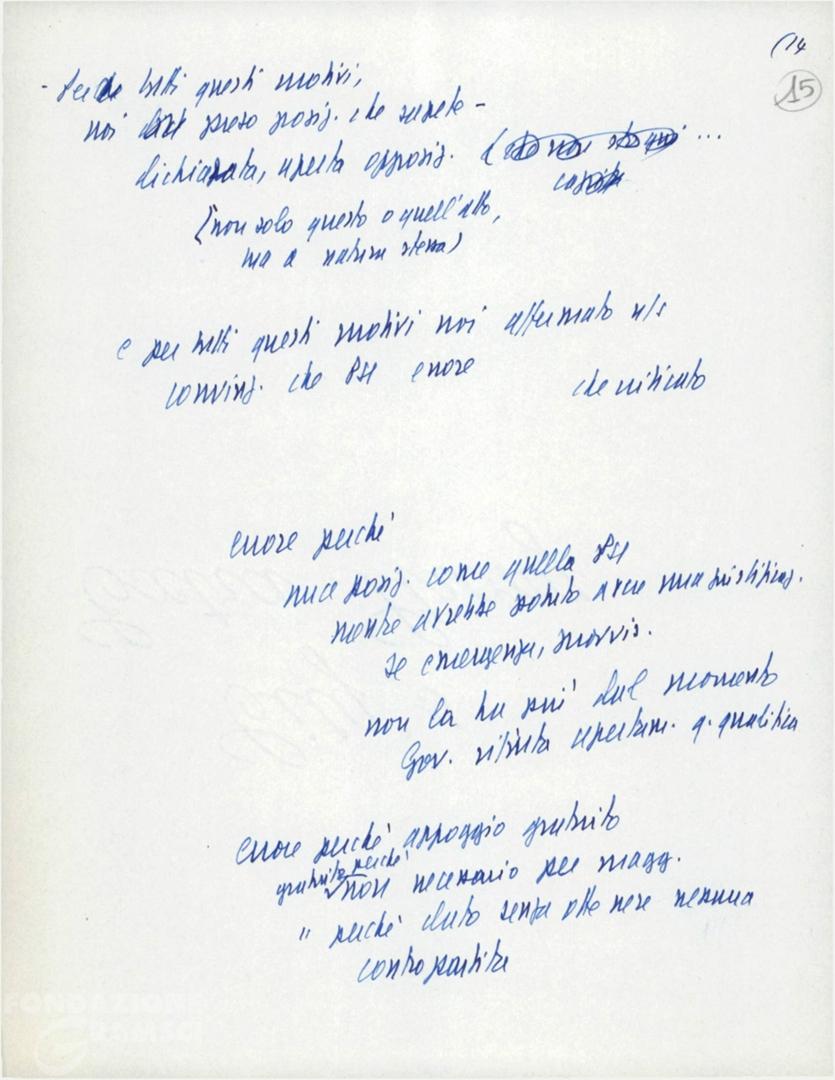 (14
15
- Per tutti questi motivi,
noi preso posiz. che sapete -
dichiarata, aperta opposiz. ( ...
(non solo questo o quell'atto,
ma a natura stessa)
e per tutti questi motivi noi affermato n/s
convinz. che PSI errore
che criticato
errore perché
una posiz. come quella PSI
mentre avrebbe potuto avere una giustificaz.
se emergenza, provvis.
non la ha più dal momento
Gov. rifiuta apertam. q. qualifica
errore perché appoggio gratuito
gratuito perché
non necessario per magg.
" perché dato senza ottenere nessuna
contropartita
FONDAZIONE
GRAMSCI